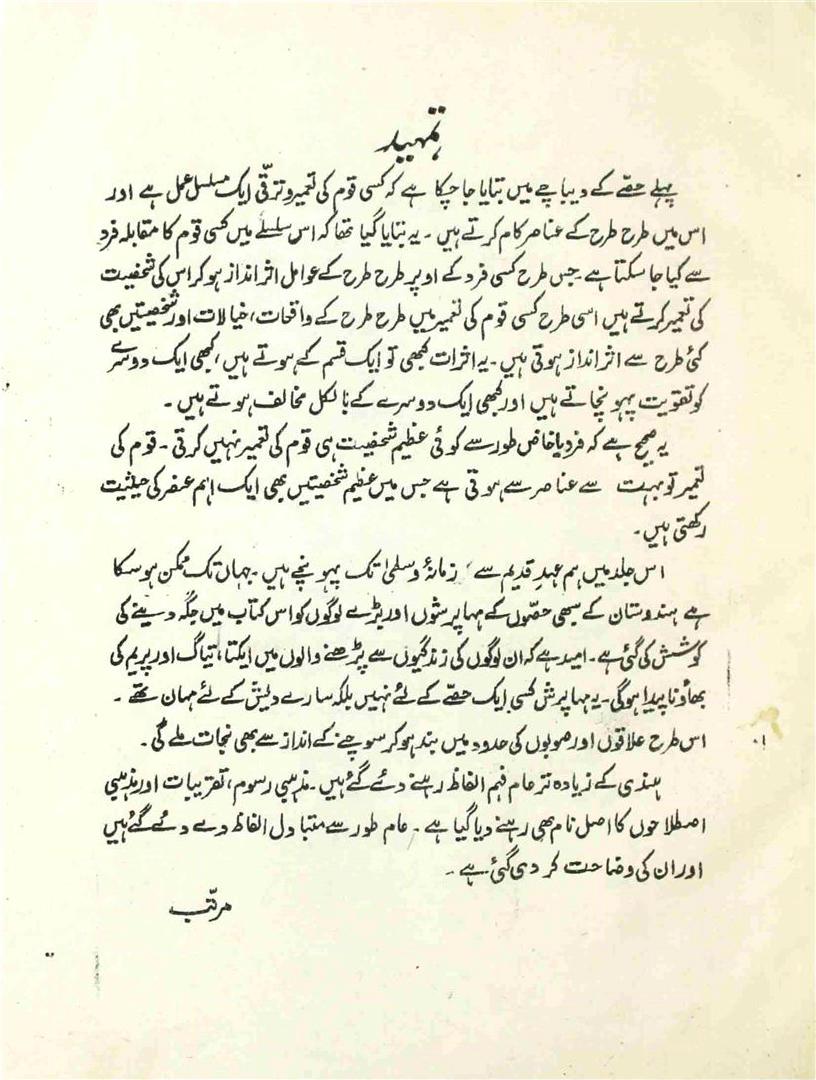 تمہید
پہلے حصّے کے دیباچے میں بتایا جا چکا ہے کہ کسی قوم کی تعمیر و ترقّی ایک مسلسل عمل ہے اور
اس میں طرح طرح کے عناصر کام کرتے ہیں ۔ یہ بتایا گیا تھا کہ اس سلسلے میں کسی قوم کا مقابلہ فرد
سے کیا جا سکتا ہے ۔ جس طرح کسی فرد کے اوپر طرح طرح کے عوامل اثر انداز ہو کر اس کی شخصیت
کی تعمیر کرتے ہیں اسی طرح کسی قوم کی تعمیر میں طرح طرح کے واقعات، خیالات اور شخصیتیں بھی
کئی طرح سے اثر انداز ہوتی ہیں ۔ یہ اثرات کبھی تو ایک قسم کے ہوتے ہیں، کبھی ایک دوسرے
کو تقویت پہونچاتے ہیں اور کبھی ایک دوسرے کے بالکل مخالف ہوتے ہیں ۔
یہ صحیح ہے کہ فرد یا خاص طور سے کوئی عظیم شخصیت ہی قوم کی تعمیر نہیں کرتی ۔ قوم کی
تعمیر تو بہت سے عناصر سے ہوتی ہے جس میں عظیم شخصیتیں بھی ایک اہم عنصر کی حیثیت
رکھتی ہیں ۔
اس جلد میں ہم عہدِ قدیم سے زمانۂ وسطیٰ تک پہونچے ہیں ۔ جہاں تک ممکن ہو سکا
ہے ہندوستان کے سبھی حصّوں کے مہاپرشوں اور بڑے لوگوں کو اس کتاب میں جگہ دینے کی
کوشش کی گئی ہے ۔ امید ہے کہ ان لوگوں کی زندگیوں سے پڑھنے والوں میں ایکتا، تیاگ اور پریم کی
بھاؤنا پیدا ہوگی ۔ یہ مہا پرش کسی ایک حصّے کے لئے نہیں بلکہ سارے دیش کے لئے مہان تھے ۔
اس طرح علاقوں اور صوبوں کی حدود میں بند ہو کر سوچنے کے انداز سے بھی نجات ملے گی ۔
ہندی کے زیادہ تر عام فہم الفاظ رہنے دئے گئے ہیں ۔ مذہبی رسوم، تقریبات اور مذہبی
اصطلاحوں کا اصل نام بھی رہنے دیا گیا ہے ۔ عام طور سے متبادل الفاظ دے دئے گئے ہیں
اور ان کی وضاحت کر دی گئی ہے ۔
مرتّب